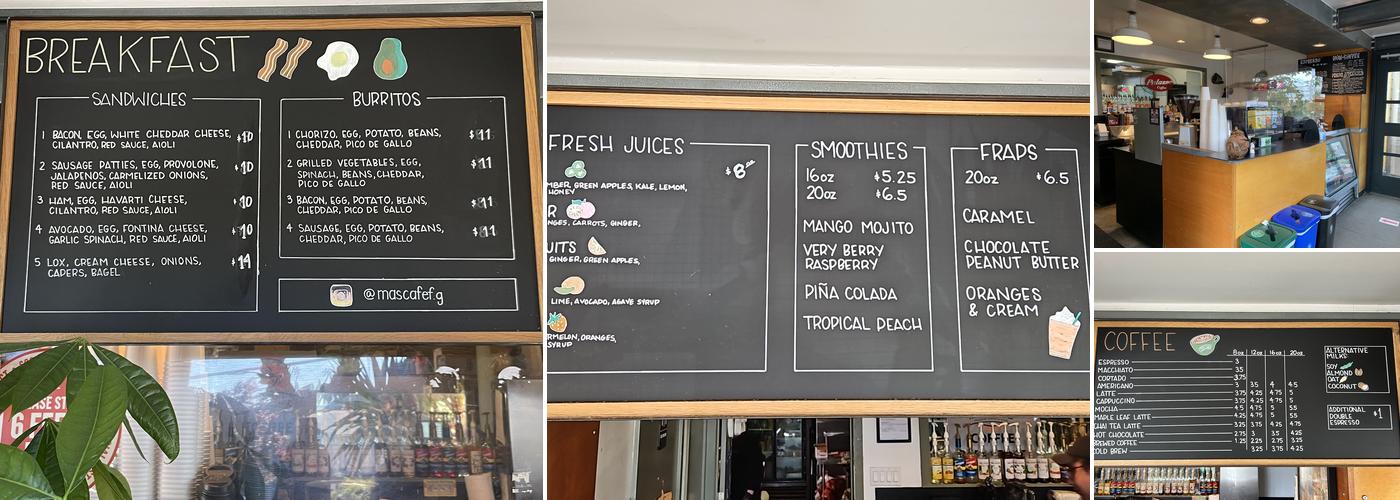 BREAKFAST
SANDWICHES
1 BACON, EGG, WHITE CHEDDAR CHEESE, $10
CILANTRO, RED SAUCE, AIOLI
2 SAUSAGE PATTIES, EGG, PROVOLONE, $10
JALAPENOS, CARMELIZED ONIONS,
RED SAUCE, AIOLI
3 HAM, EGG, HAVARTI CHEESE, $10
CILANTRO, RED SAUCE, AIOLI
4 AVOCADO, EGG, FONTINA CHEESE, $10
GARLIC SPINACH, RED SAUCE, AIOLI
5 LOX, CREAM CHEESE, ONIONS, $14
CAPERS, BAGEL
BURRITOS
1 CHORIZO, EGG, POTATO, BEANS, $11
CHEDDAR, PICO DE GALLO
2 GRILLED VEGETABLES, EGG, $11
SPINACH, BEANS, CHEDDAR,
PICO DE GALLO
3 BACON, EGG, POTATO, BEANS, $11
CHEDDAR, PICO DE GALLO
4 SAUSAGE, EGG, POTATO, BEANS, $11
CHEDDAR, PICO DE GALLO
@mascafef.g
FRESH JUICES
$8
MBER, GREEN APPLES, KALE, LEMON,
HONEY
R
NGES, CARROTS, GINGER,
UITS
GINGER, GREEN APPLES,
LIME, AVOCADO, AGAVE SYRUP
RMELON, ORANGES,
SYRUP
SMOOTHIES
16oz $5.25
20oz $6.5
MANGO MOJITO
VERY BERRY
RASPBERRY
PIÑA COLADA
TROPICAL PEACH
FRAPS
20oz $6.5
CARAMEL
CHOCOLATE
PEANUT BUTTER
ORANGES
& CREAM
ESPRESSO
NON-COFFEE
COFFEE
8oz 12oz 16oz 20oz
ESPRESSO 3
MACCHIATO 3.5
CORTADO 3.75
AMERICANO 3 3.5 4 4.5
LATTE 3.75 4.25 4.75 5
CAPPUCCINO 3.75 4.25 4.75 5
MOCHA 4.5 4.75 5 5.5
MAPLE LEAF LATTE 4.25 4.75 5 5.5
CHAI TEA LATTE 3.25 3.75 4.25 4.75
HOT CHOCOLATE 2.75 3 3.5 4.25
BREWED COFFEE 1.25 2.25 2.75 3.25
COLD BREW 3.25 3.75 4.25
ALTERNATIVE
MILKS:
SOY
ALMOND
OAT
COCONUT
ADDITIONAL
DOUBLE $1
ESPRESSO